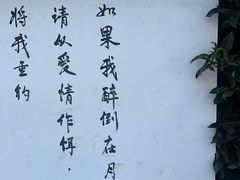 如果我醉倒在月
请从爱情作饵.
将我重约